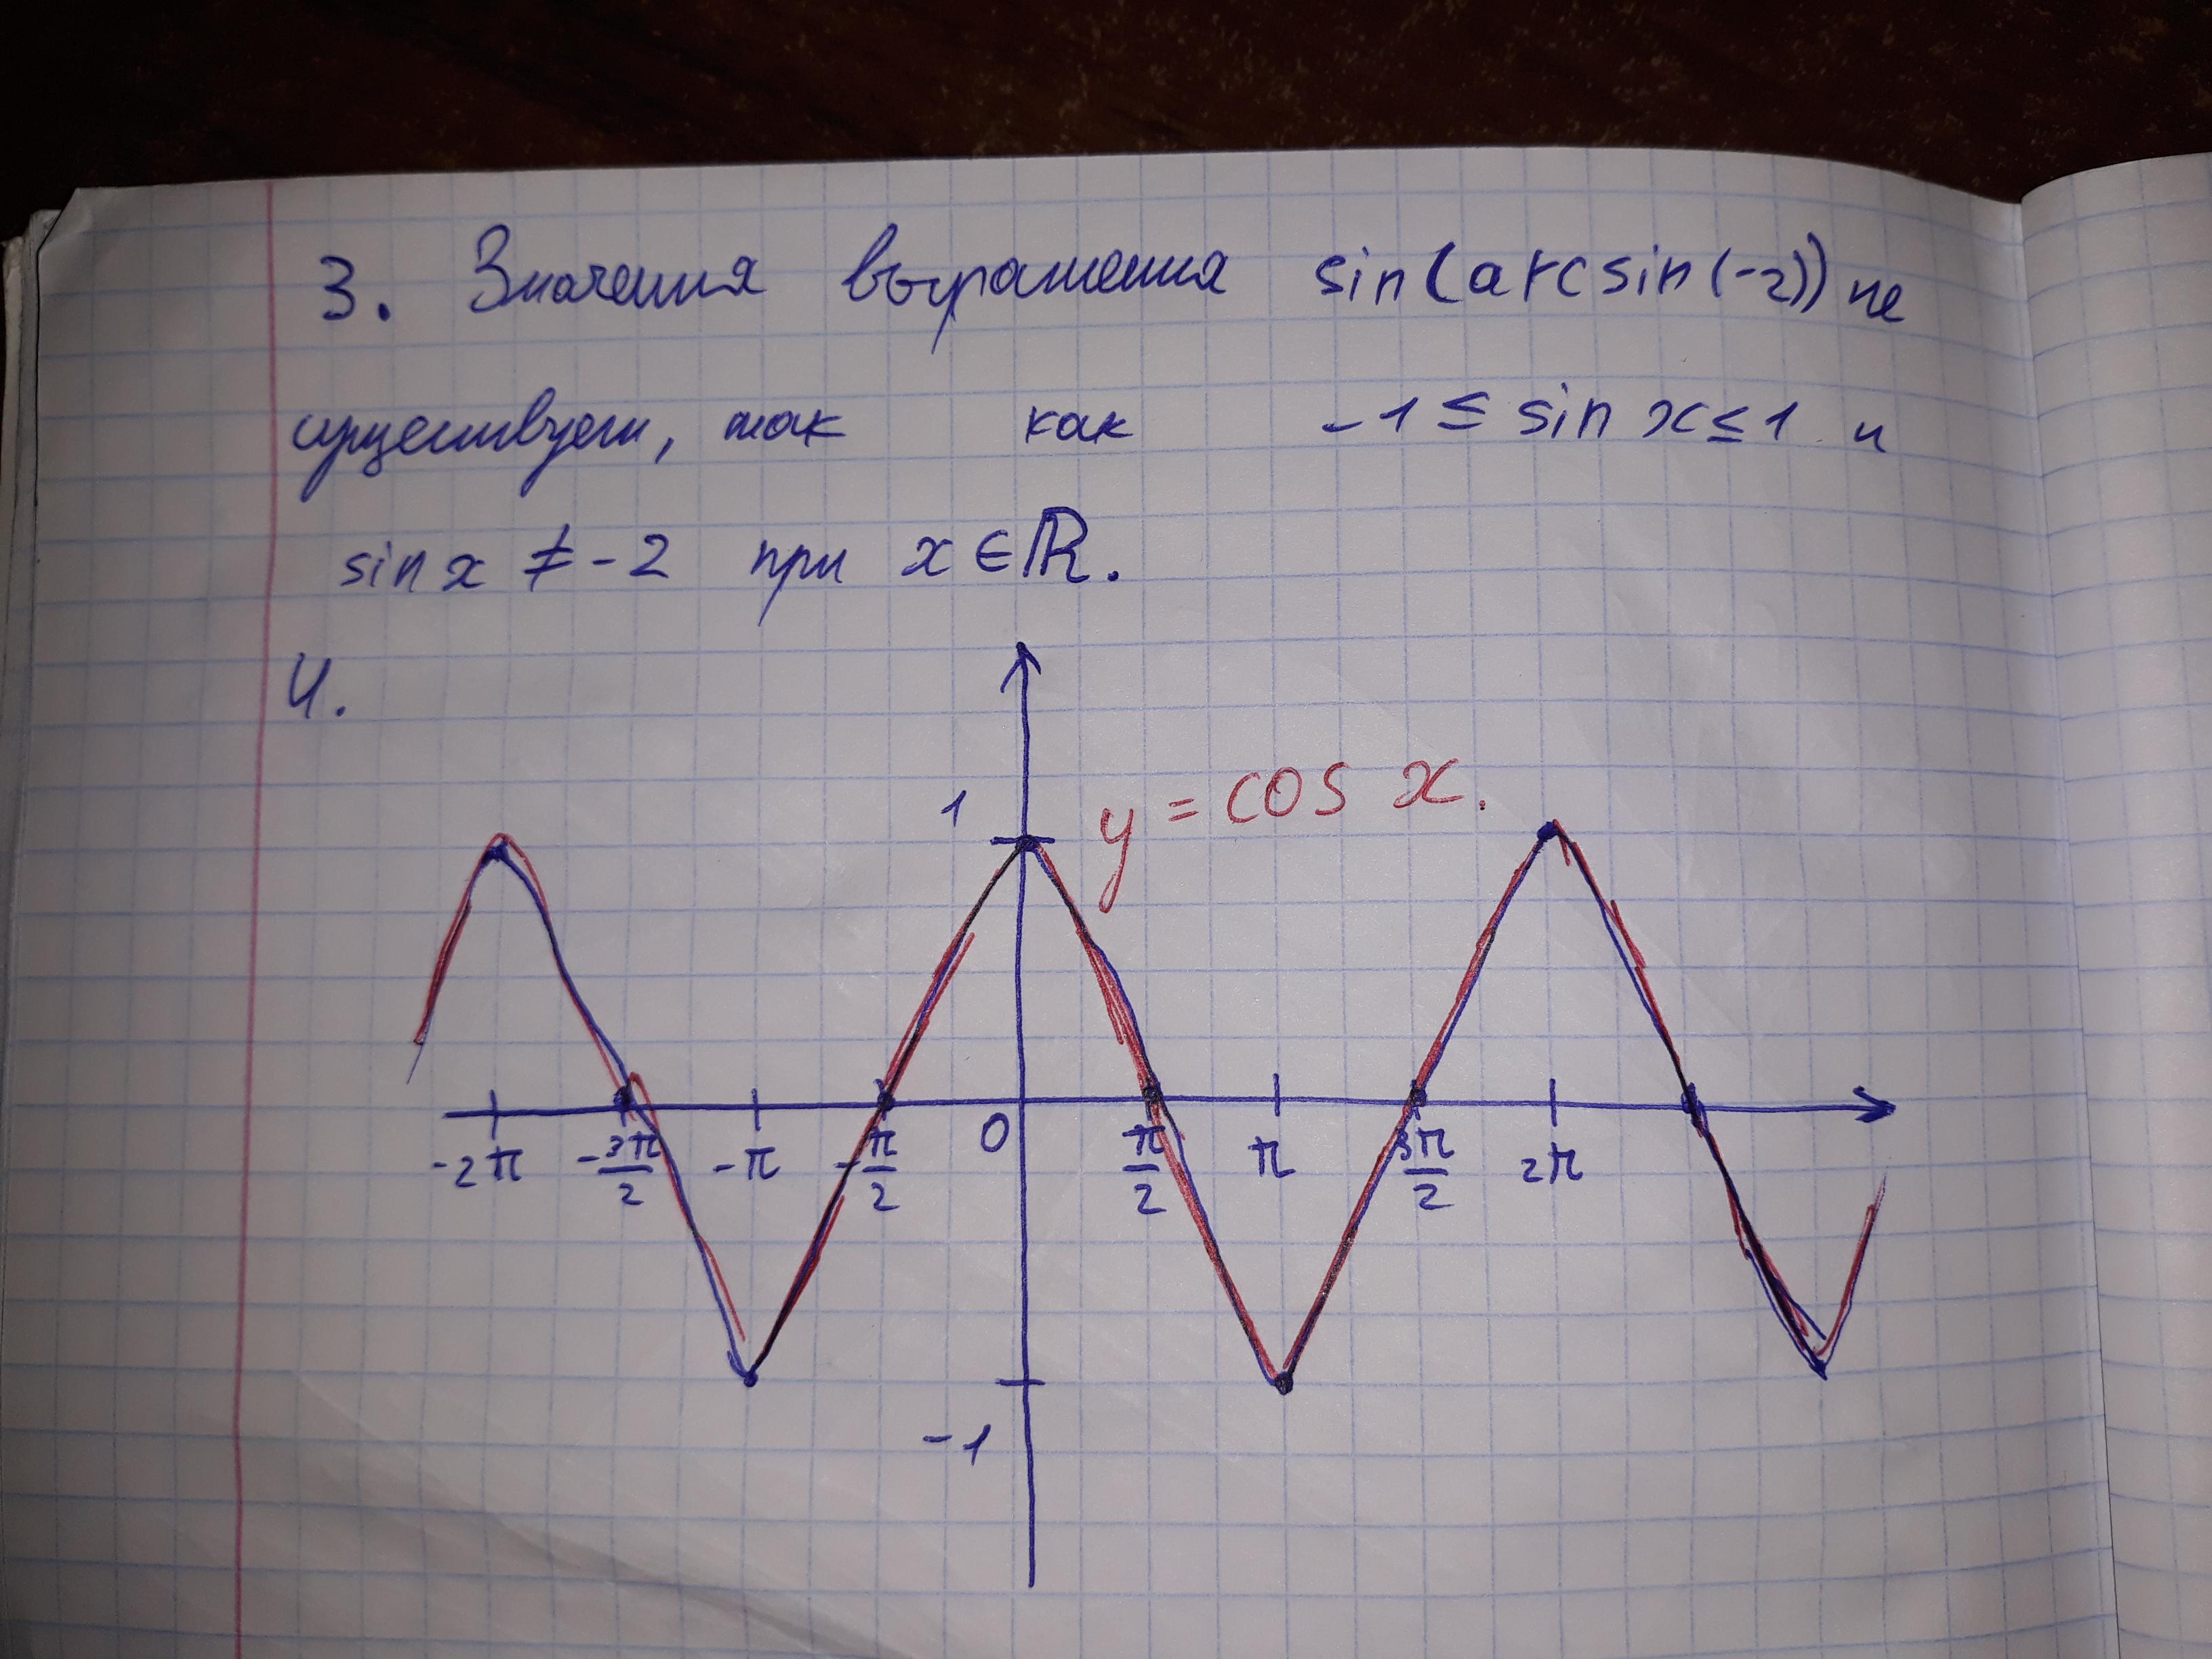 3. Значения выражения sin(arcsin(-2)) не
существует, так как -1 ≤ sin x ≤ 1 и
sin x ≠ -2 при x ∈ ℝ.
4.
1 y = cos x.
-2π -3π/2 -π -π/2 0 π/2 π 3π/2 2π
-1